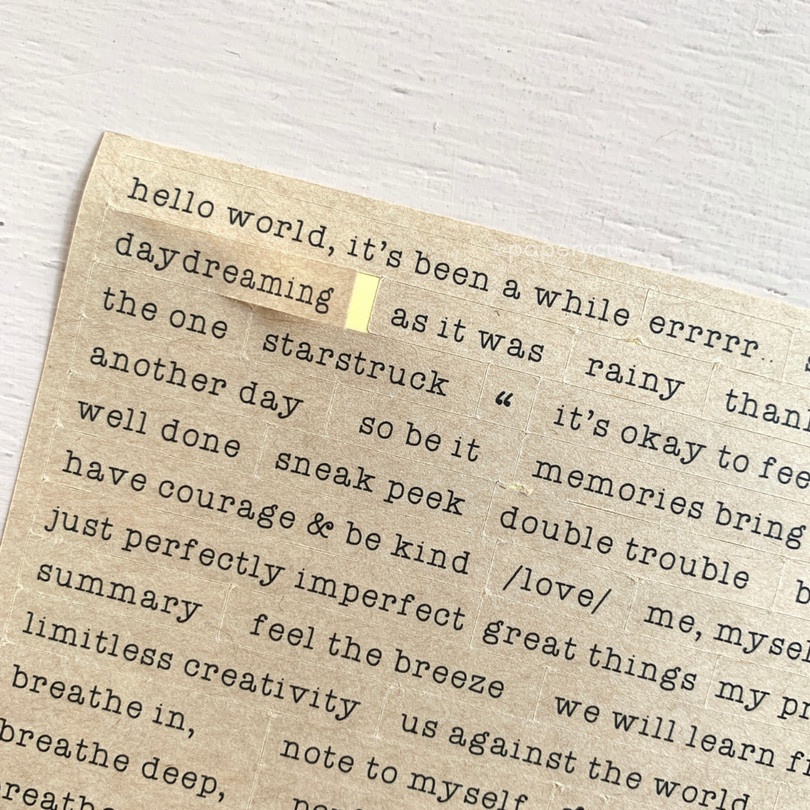 hello world, it's been a while errrrr..
daydreaming as it was rainy
the one starstruck “ it's okay to
another day so be it memories bring
well done sneak peek double trouble
have courage & be kind /love/ me,
just perfectly imperfect great things my
summary feel the breeze we will learn
limitless creativity us against the world
breathe in, note to myself
breathe deep,